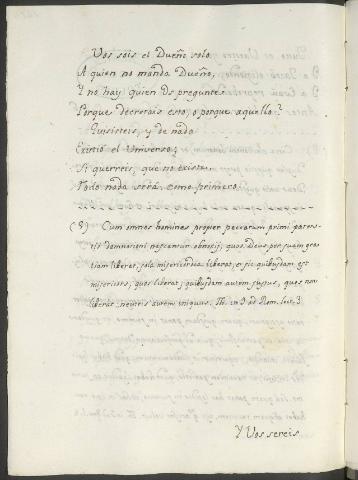 Vos sois el Dueño solo
A quien no manda Dueño,
Y no hay quien Os pregunte
Porque decretais esto, o porque aquello?
Quisisteis, y de nada
Existió el Universo;
Si quereis, que no exista
Todo nada será, como primero.
(8) Cum omnes homines propter peccatum primi paren-
tis damnationi nascantur obnoxij, quos Deus per suam gra-
tiam liberat, sola misericordia liberat, et sic quibusdam est
misericors, quos liberat, quibusdam autem justus, quos non
liberat, neutris autem iniquus. Th. in 9. ad Rom. lect. 3.
Y Vos sereis